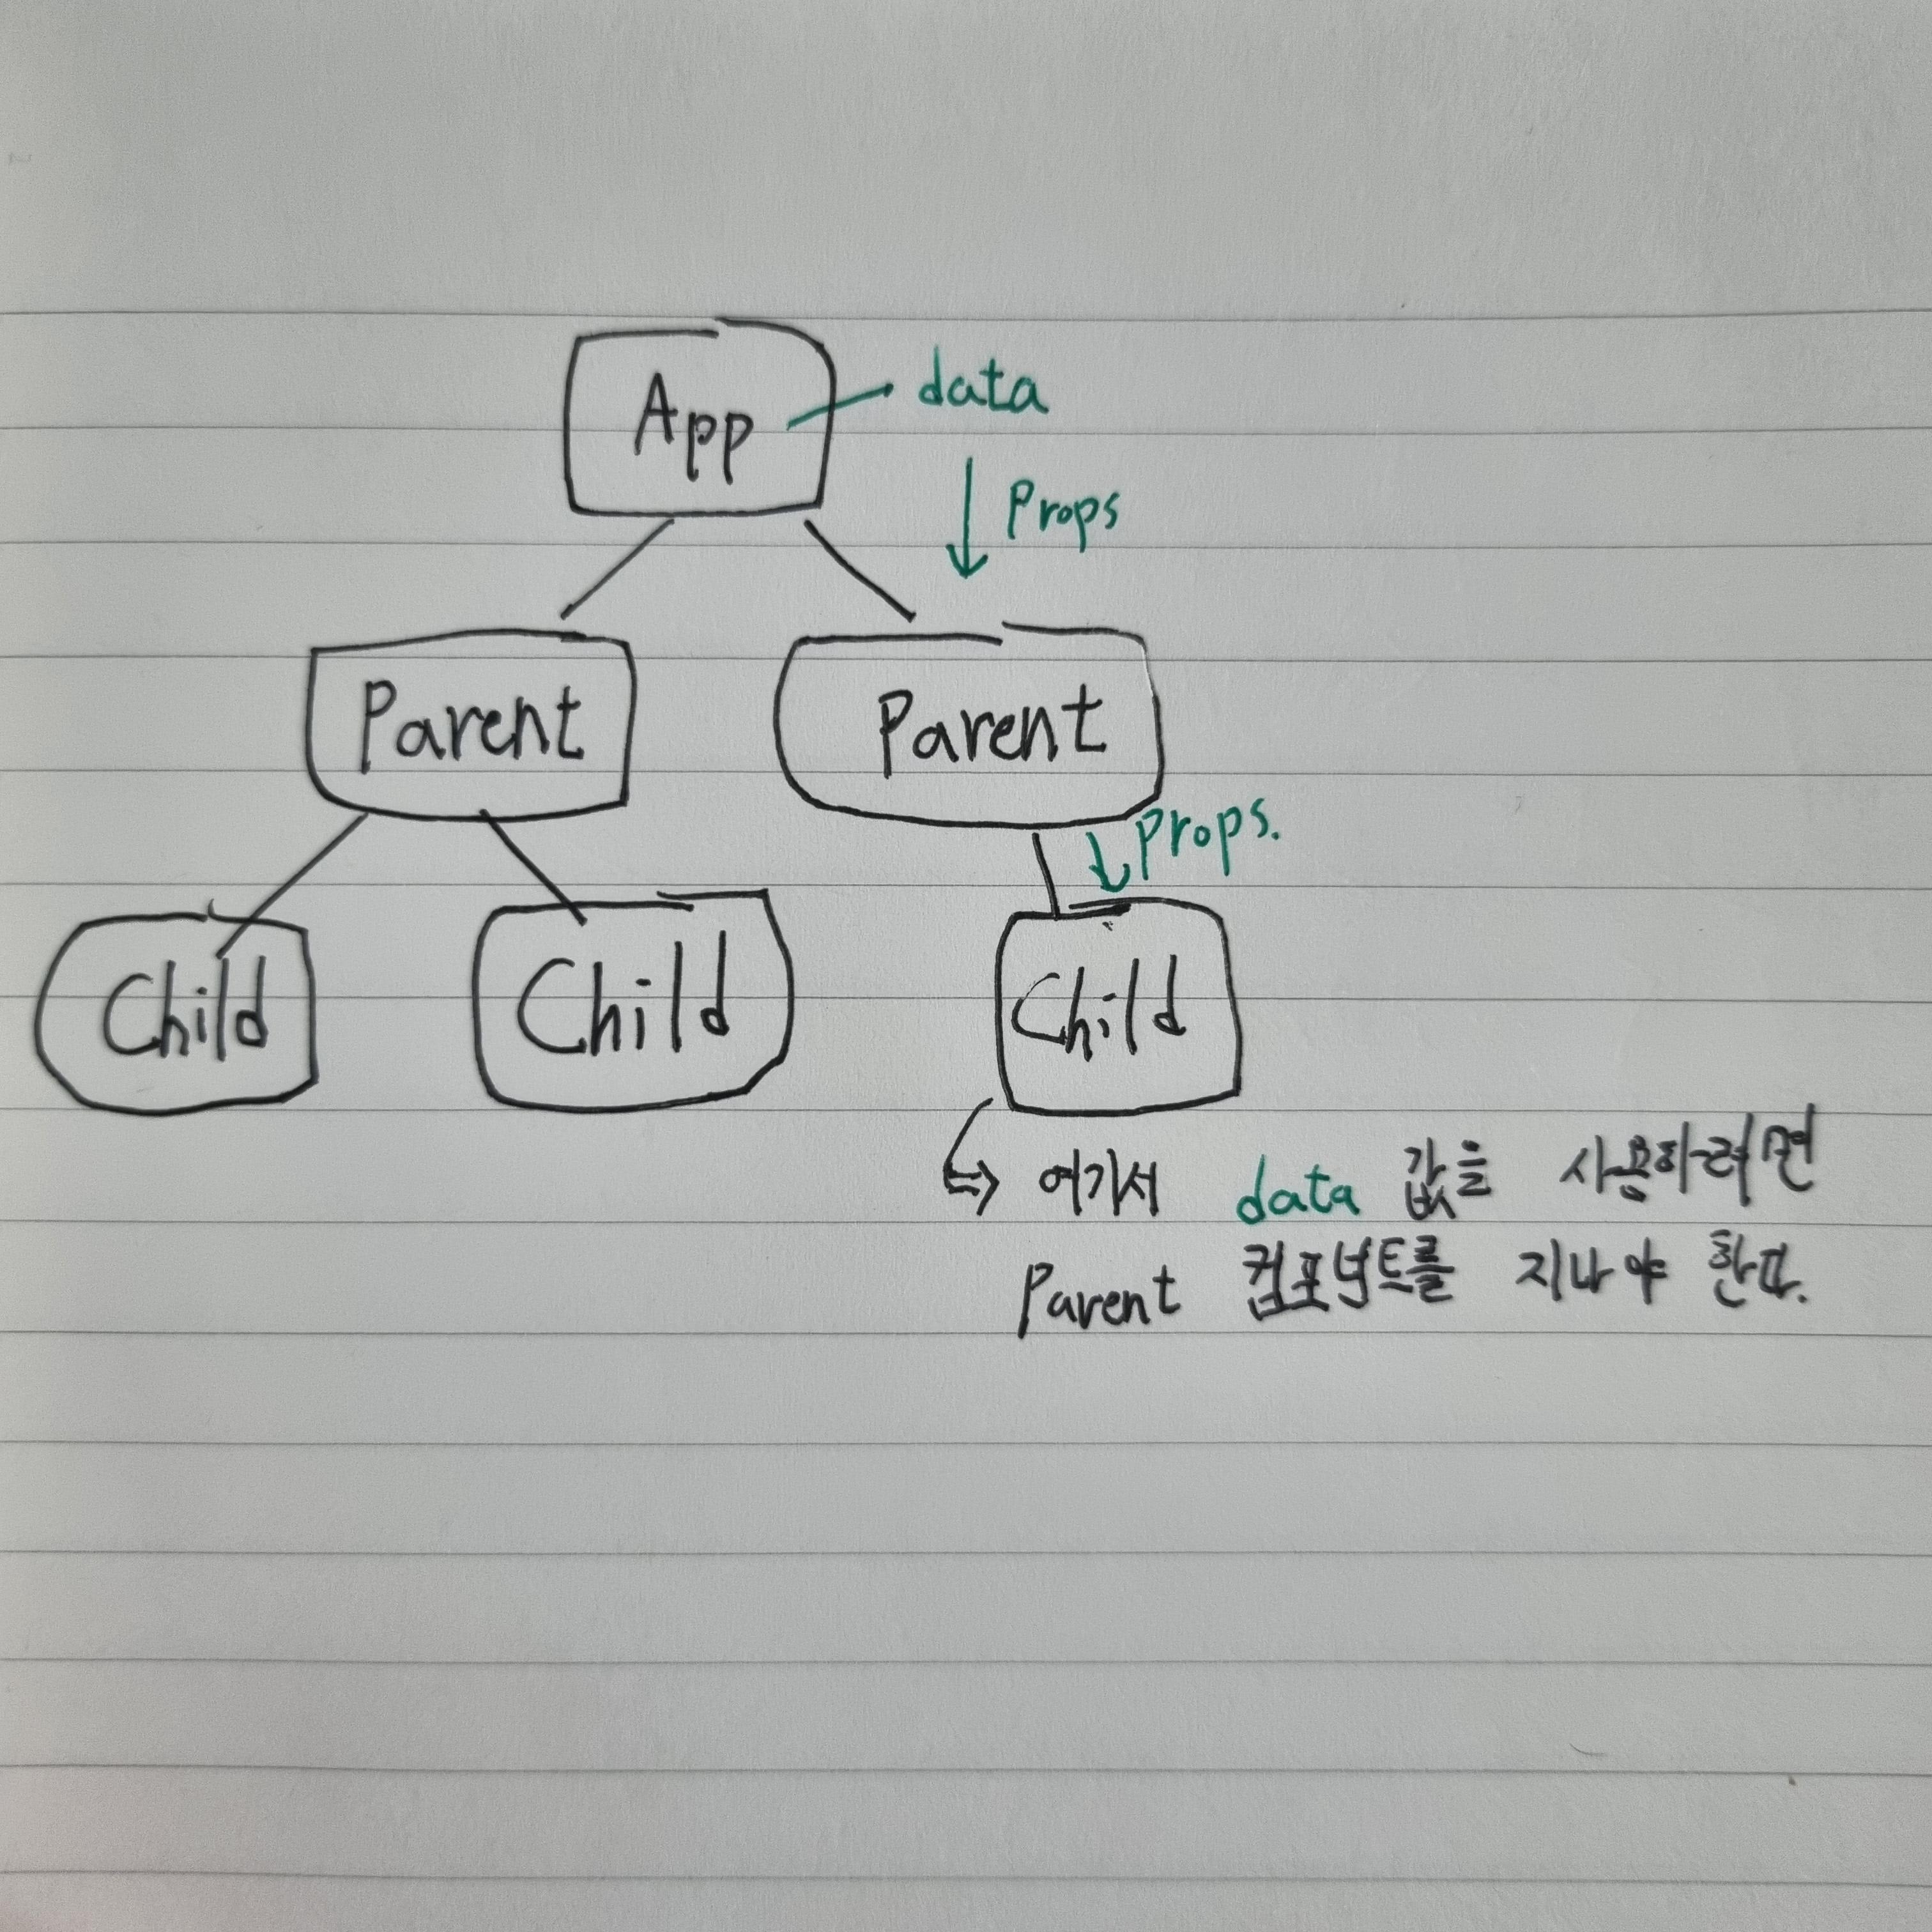 App
data
Props
Parent
Parent
Props.
Child
Child
Child
여기서 data 값을 사용하려면
Parent 컴포넌트를 지나야 한다.